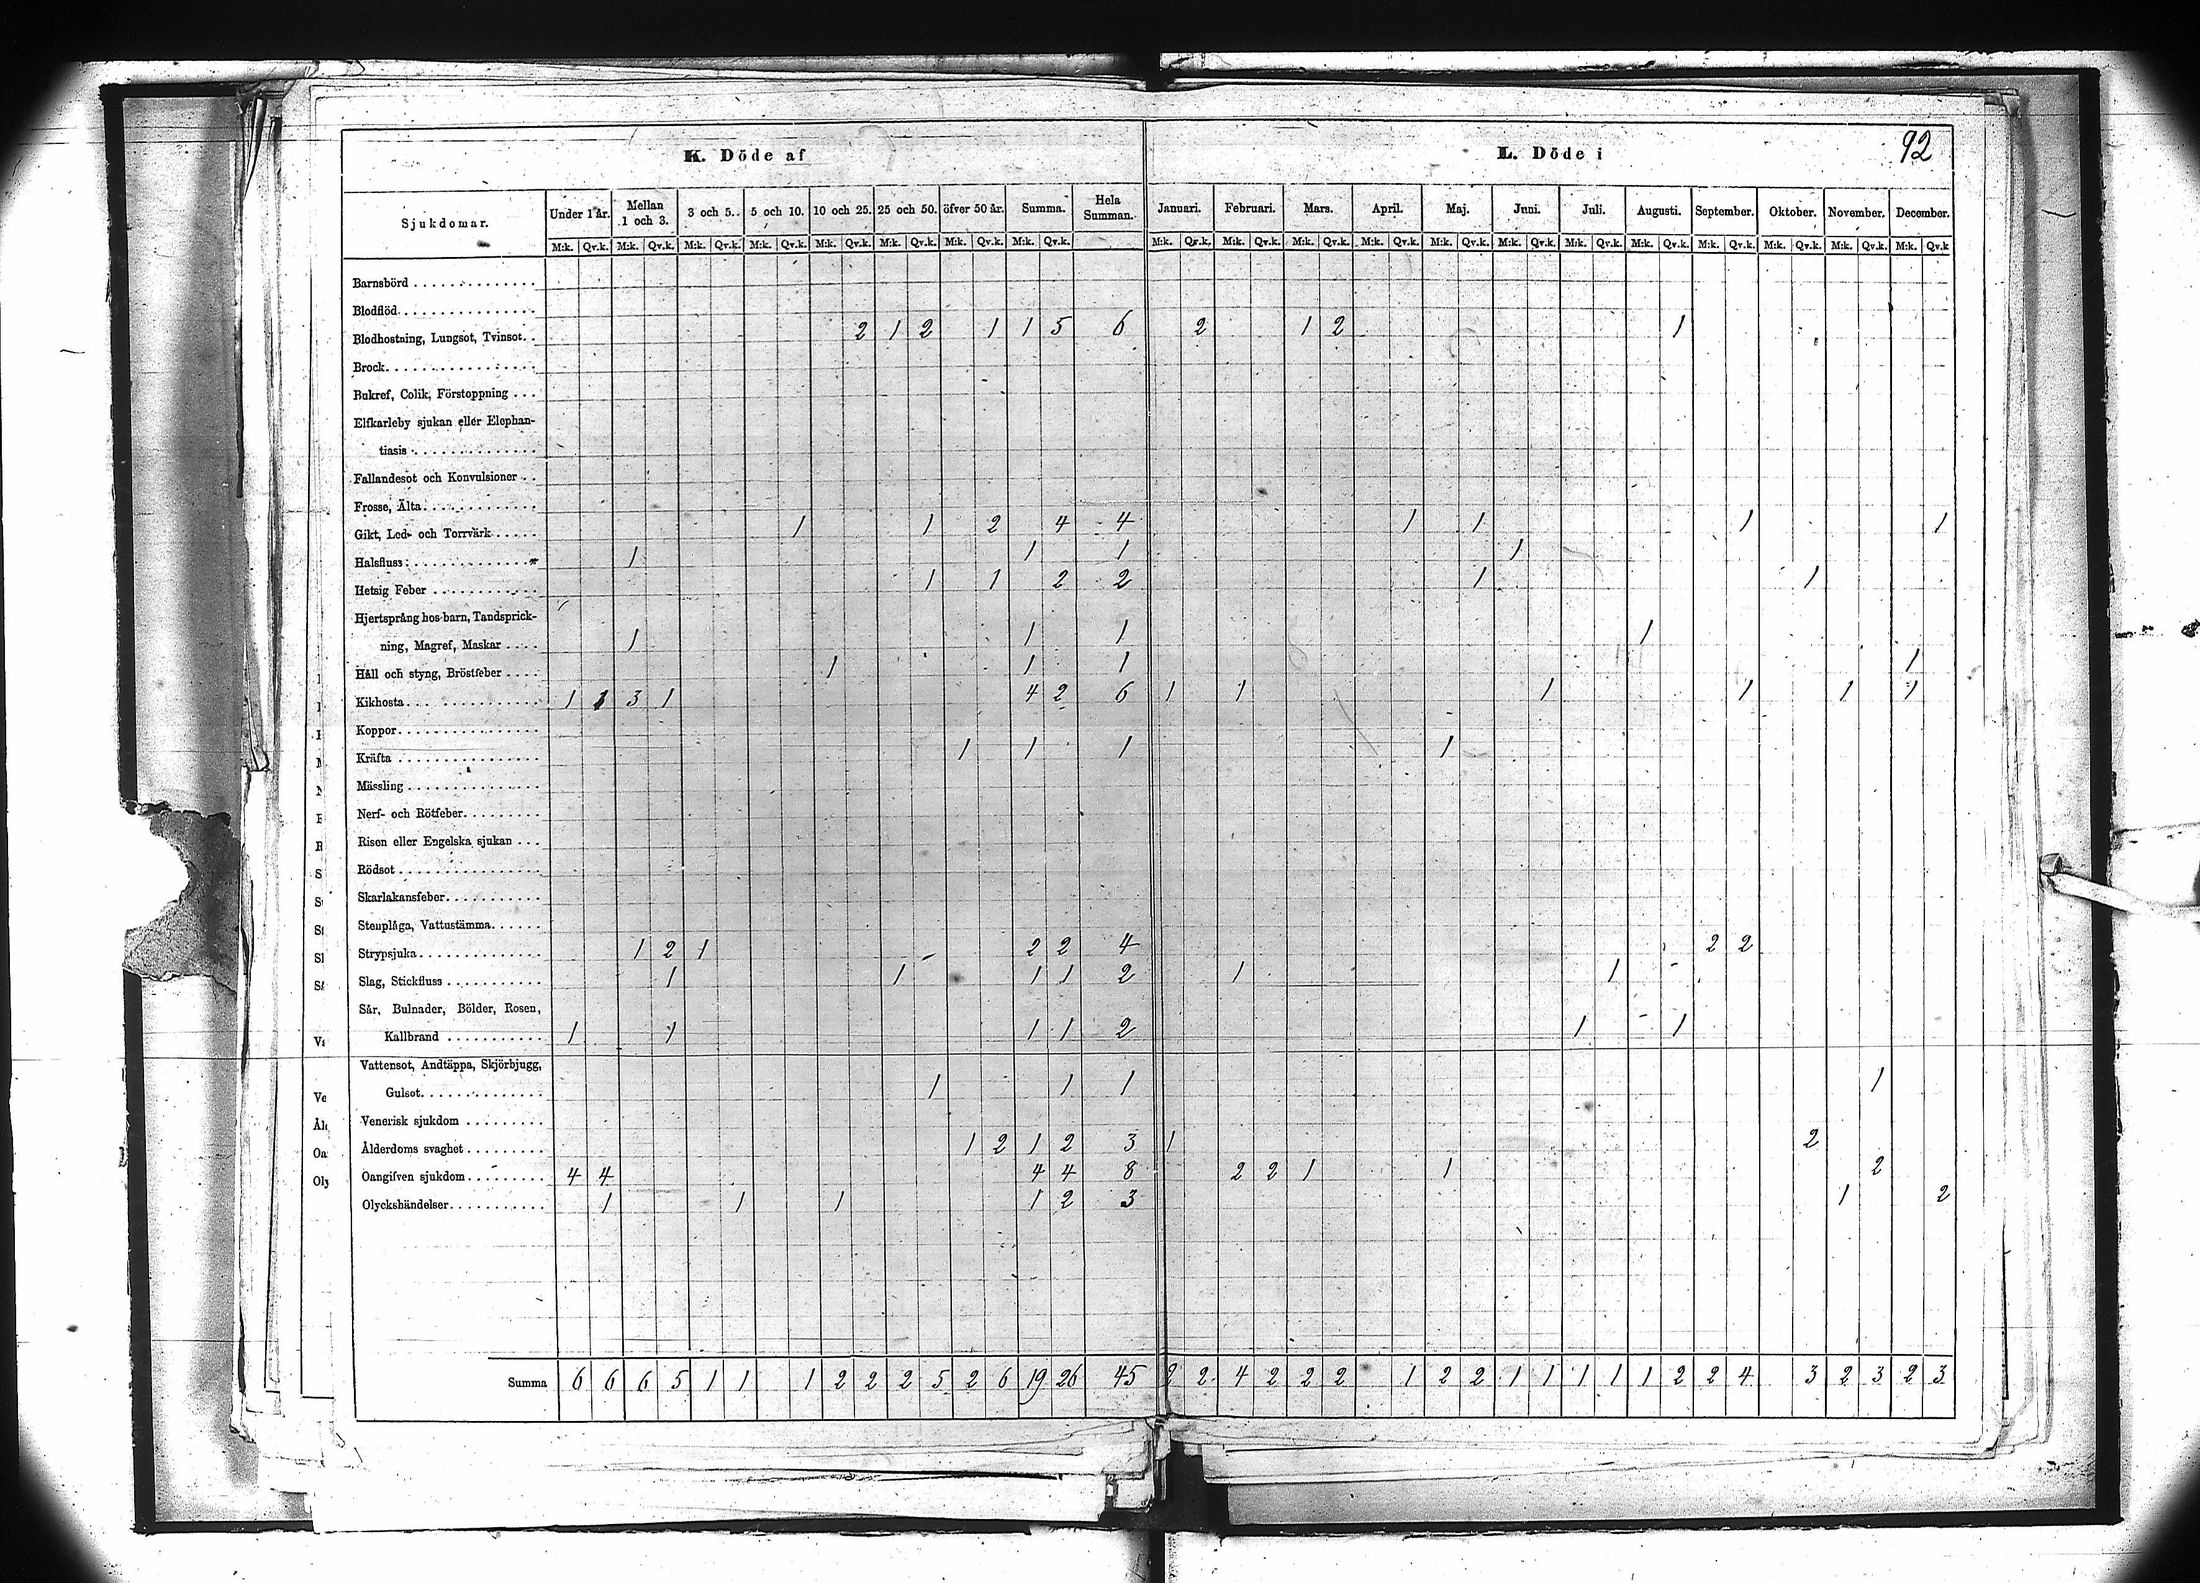 92
K. Döde af L. Döde i
Sjukdomar. Under 1 år. Mellan 1 och 3. 3 och 5. 5 och 10. 10 och 25. 25 och 50. öfver 50 år. Summa. Hela Summan. Januari. Februari. Mars. April. Maj. Juni. Juli. Augusti. September. Oktober. November. December.
M:k. Qv.k. M:k. Qv.k. M:k. Qv.k. M:k. Qv.k. M:k. Qv.k. M:k. Qv.k. M:k. Qv.k. M:k. Qv.k. M:k. Qv.k. M:k. Qv.k. M:k. Qv.k. M:k. Qv.k. M:k. Qv.k. M:k. Qv.k. M:k. Qv.k. M:k. Qv.k. M:k. Qv.k. M:k. Qv.k. M:k. Qv.k. M:k. Qv.k
Barnsbörd
Blodflöd
Blodhostning, Lungsot, Tvinsot. 2 1 2 1 1 5 6 2 1 2 1
Brock
Bukref, Colik, Förstoppning
Elfkarleby sjukan eller Elephan-
tiasis
Fallandesot och Konvulsioner
Frosse, Älta
Gikt, Led- och Torrvärk 1 1 2 4 4 1 1 1 1
Halsfluss 1 1 1 1
Hetsig Feber 1 1 2 2 1 1
Hjertsprång hos barn, Tandsprick-
ning, Magref, Maskar 1 1 1 1
Håll och styng, Bröstfeber 1 1 1 1
Kikhosta 1 1 3 1 4 2 6 1 1 1 1 1 1
Koppor
Kräfta 1 1 1 1
Mässling
Nerf- och Rötfeber
Risen eller Engelska sjukan
Rödsot
Skarlakansfeber
Stenplåga, Vattustämma
Strypsjuka 1 2 1 2 2 4 2 2
Slag, Stickfluss 1 1 1 1 2 1 1
Sår, Bulnader, Bölder, Rosen,
Kallbrand 1 1 1 1 2 1 1
Vattensot, Andtäppa, Skjörbjugg,
Gulsot 1 1 1 1
Venerisk sjukdom
Ålderdoms svaghet 1 2 1 2 3 1 2
Oangifven sjukdom 4 4 4 4 8 2 2 1 1 2
Olyckshändelser 1 1 1 1 2 3 1 2
Summa 6 6 6 5 1 1 1 2 2 2 5 2 6 19 26 45 2 2 4 2 2 2 1 2 2 1 1 1 1 1 2 2 4 3 2 3 2 3